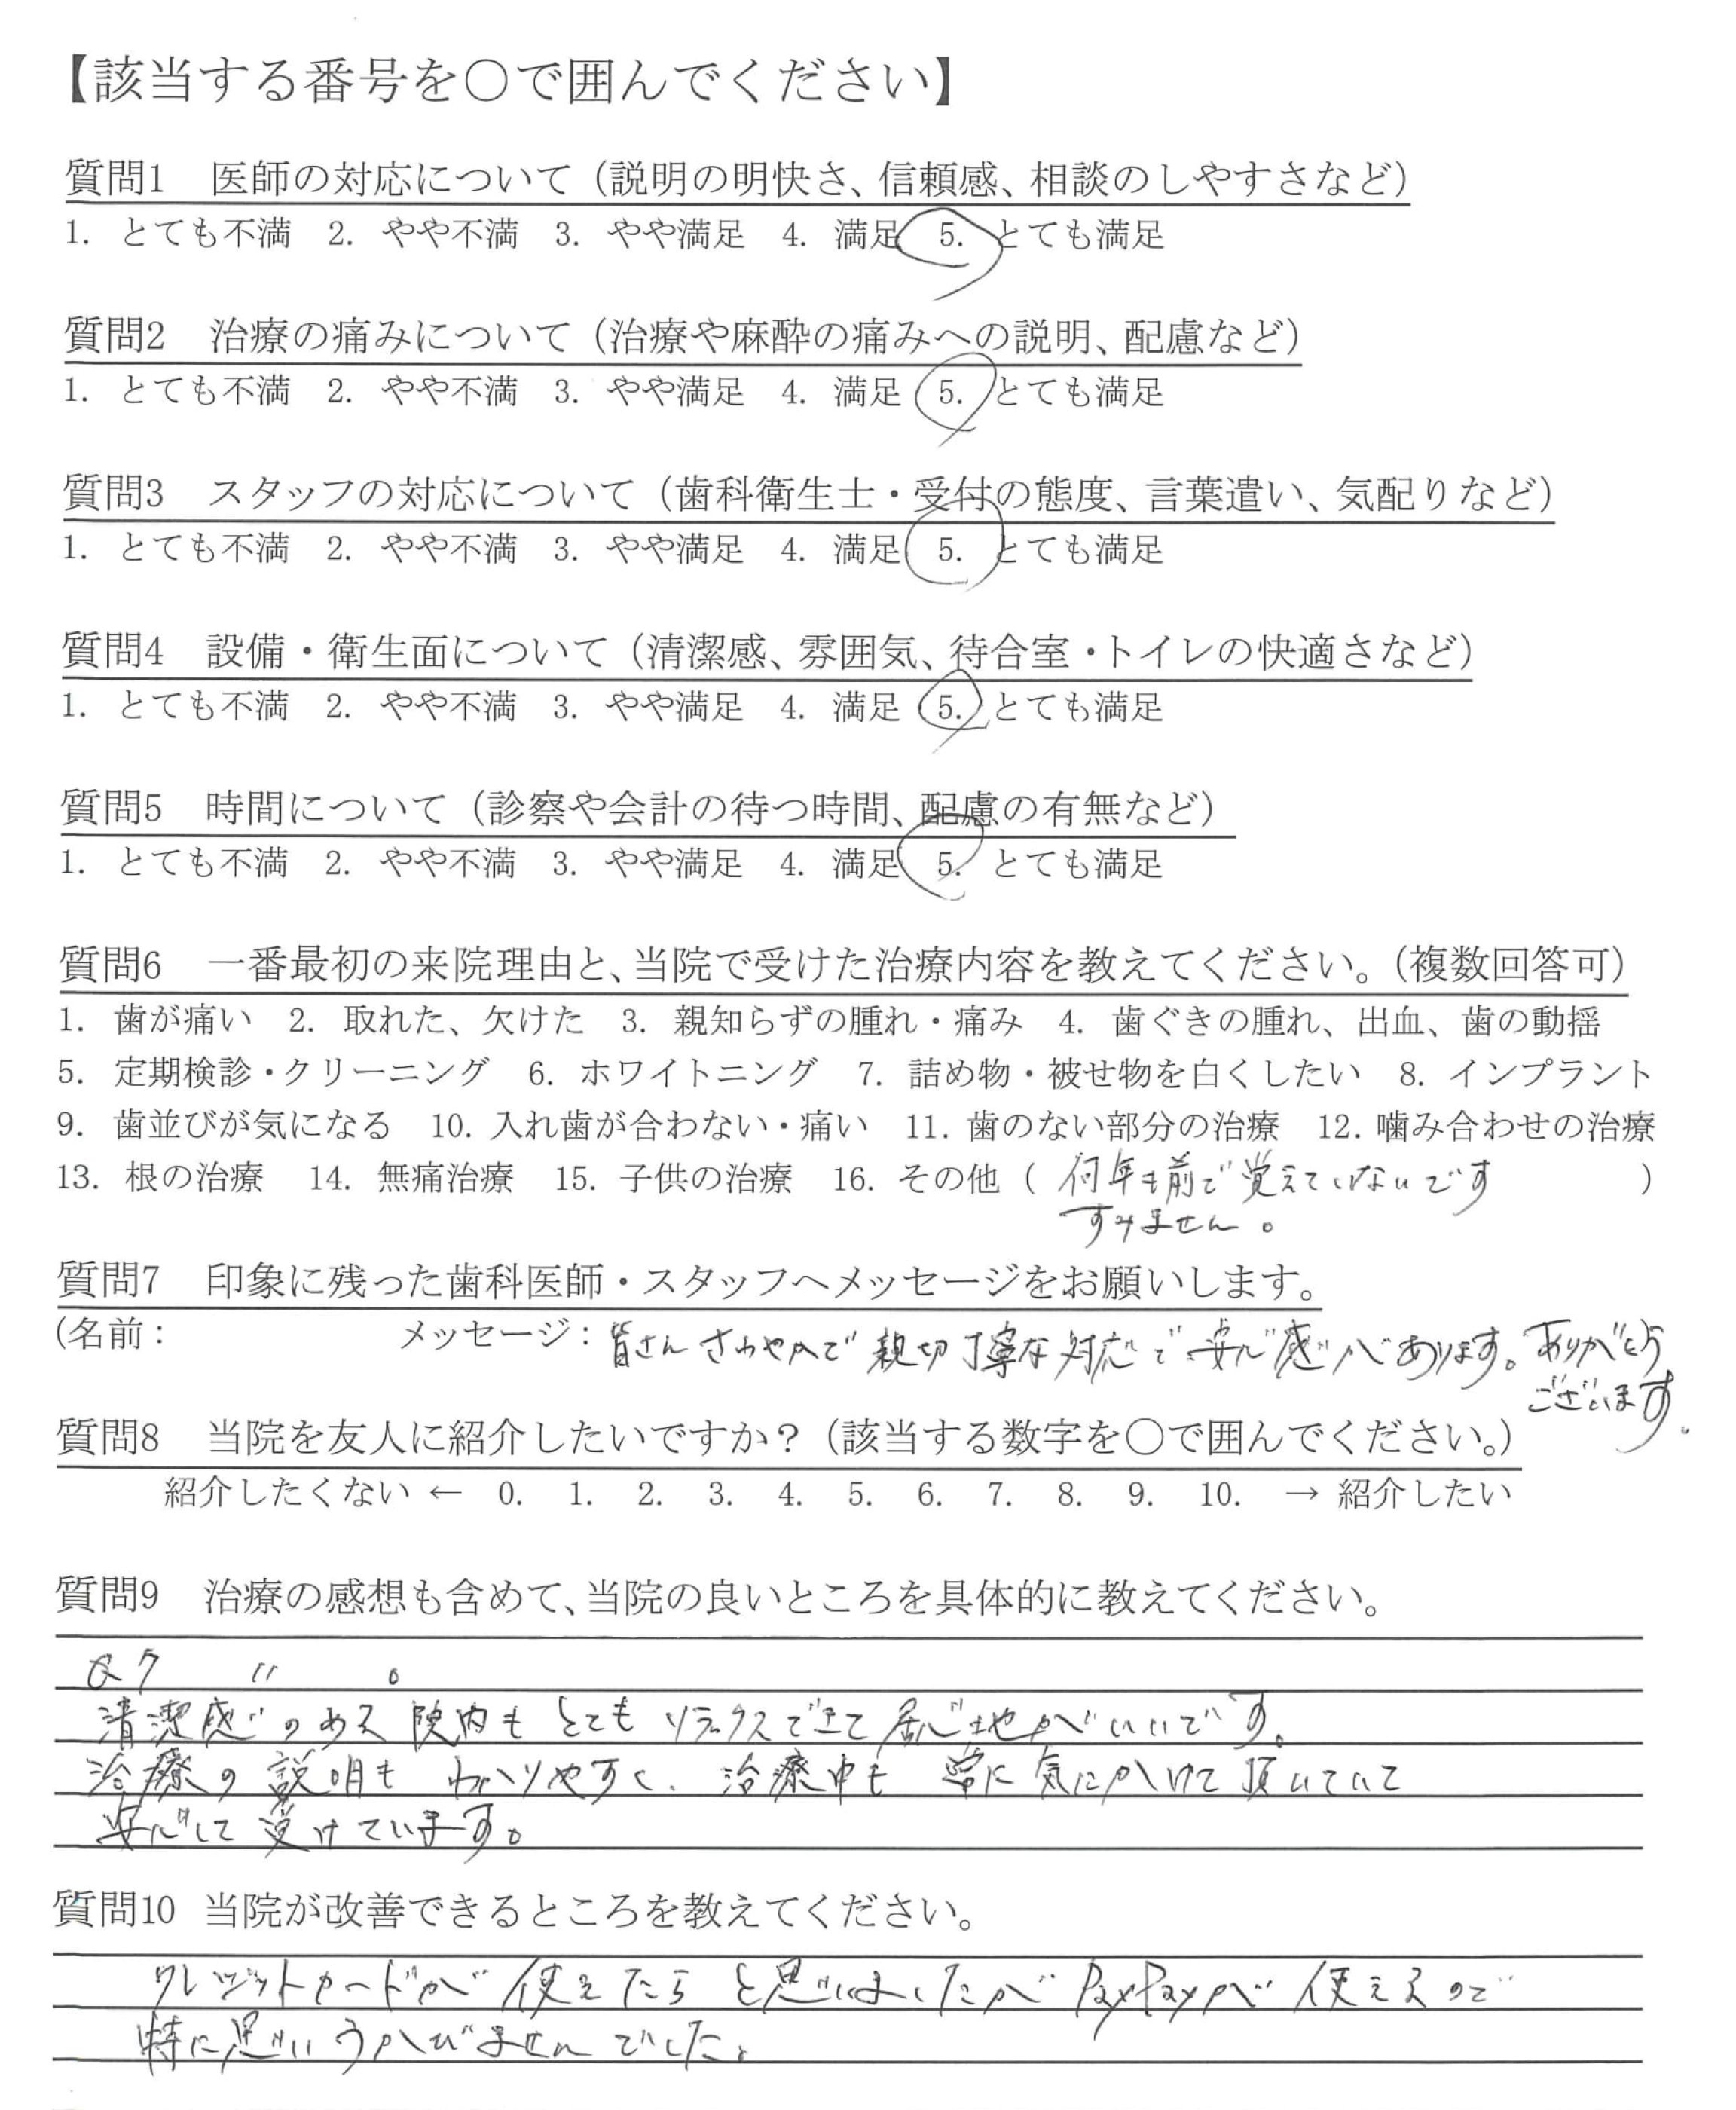 【該当する番号を○で囲んでください】
質問1　医師の対応について（説明の明快さ、信頼感、相談のしやすさなど）
1. とても不満　2. やや不満　3. やや満足　4. 満足　5. とても満足
質問2　治療の痛みについて（治療や麻酔の痛みへの説明、配慮など）
1. とても不満　2. やや不満　3. やや満足　4. 満足　5. とても満足
質問3　スタッフの対応について（歯科衛生士・受付の態度、言葉遣い、気配りなど）
1. とても不満　2. やや不満　3. やや満足　4. 満足　5. とても満足
質問4　設備・衛生面について（清潔感、雰囲気、待合室・トイレの快適さなど）
1. とても不満　2. やや不満　3. やや満足　4. 満足　5. とても満足
質問5　時間について（診察や会計の待つ時間、配慮の有無など）
1. とても不満　2. やや不満　3. やや満足　4. 満足　5. とても満足
質問6　一番最初の来院理由と、当院で受けた治療内容を教えてください。（複数回答可）
1. 歯が痛い　2. 取れた、欠けた　3. 親知らずの腫れ・痛み　4. 歯ぐきの腫れ、出血、歯の動揺
5. 定期検診・クリーニング　6. ホワイトニング　7. 詰め物・被せ物を白くしたい　8. インプラント
9. 歯並びが気になる　10. 入れ歯が合わない・痛い　11. 歯のない部分の治療　12. 噛み合わせの治療
13. 根の治療　14. 無痛治療　15. 子供の治療　16. その他（何年も前で覚えていないです　）
すみません。
質問7　印象に残った歯科医師・スタッフへメッセージをお願いします。
(名前：　メッセージ：皆さんさわやかで親切丁寧な対応で安心感があります。ありがとう
ございます。
質問8　当院を友人に紹介したいですか？（該当する数字を○で囲んでください。）
紹介したくない ← 0. 1. 2. 3. 4. 5. 6. 7. 8. 9. 10. → 紹介したい
質問9　治療の感想も含めて、当院の良いところを具体的に教えてください。
Q7　〃　。
清潔感のある院内もとてもリラックスできて居心地がいいです。
治療の説明もわかりやすく、治療中も常に気にかけて頂いていて
安心して受けています。
質問10　当院が改善できるところを教えてください。
クレジットカードが使えたらと思いましたがPayPayが使えるので
特に思いうかびませんでした。